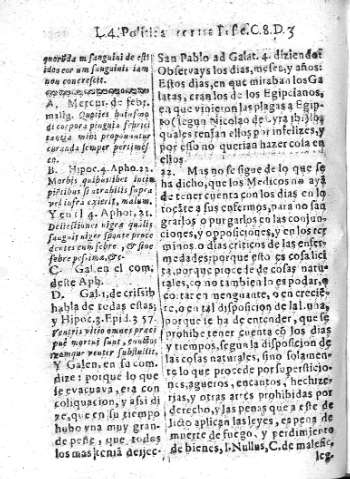 L.4. Politica
quoru̅da̅ m sanguini de est
idoo eor um sanguinis iam
non concrescit.
A. Mercur. de febr.
malig. Quoties
di corpora pinguia
tacua mihi proponuntur
curanda semper pertimes-
co.
B. Hipoc. 4. Apho. 22.
Morbis quibuslibet incip
pie̅tibus si atrabilis supra
vel infra exierit, malum.
Y en el 4. Aphor. 21.
Deiectiones nigræ qualis
sanguis niger sponte proce
dentes cum febre, & sine
febre pessimæ, &c.
C. Gal. en el com.
deste Aph.
D. Gal. 1. de crisib
habla de todas estas;
y Hipoc. 3. Epid. 3 57.
Ventris vitio omnes præci
puè mortui sunt,
namque venter substulit.
Y Galen. en su com.
dize: porque lo que
se evacuava, era con
coliquacion, y assi di
ze, que en su tiempo
hubo vna muy gran-
de peste; que todos
los mas tenia̅ dejec-
San Pablo ad Galat. 4. diziendo:
Observays los dias, meses, y años:
Estos dias, en que miraban los Ga
latas, eran los de los Egipcianos,
en que vinieron las plagas a Egip-
to (segun Nicolao de Lyra) los
quales tenian ellos por infelizes, y
por esso no querian hazer cola en
ellos.
22. Mas no se sigue de lo que se
ha dicho, que los Medicos no aya̅
de tener cuenta con los dias en lo
tocãte a sus enfermos, para no san
grarlos o purgarlos en las conjun-
ciones, y opposiciones, y en los ter
minos o dias criticos de las enfer-
medades: porque esto es cosa lici
ta, porque procede de cosas natu-
rales, co no tambien los podar, o
cortar en menguante, o en crecie̅-
te, o en tal disposicion de la Luna,
porque se ha de entender, que se
prohibe tener cuenta co̅ los dias
y tiempos, segun la disposicion de
las cosas naturales, sino solamen-
te lo que procede por supersticio-
nes, agueros, encantos, hechize-
rias, y otras artes prohibidas por
derecho, y las penas que a este de
licto aplican las leyes, es pena de
muerte de fuego, y perdimiento
de bienes, l. Nullus, C. de malefic.
leg.